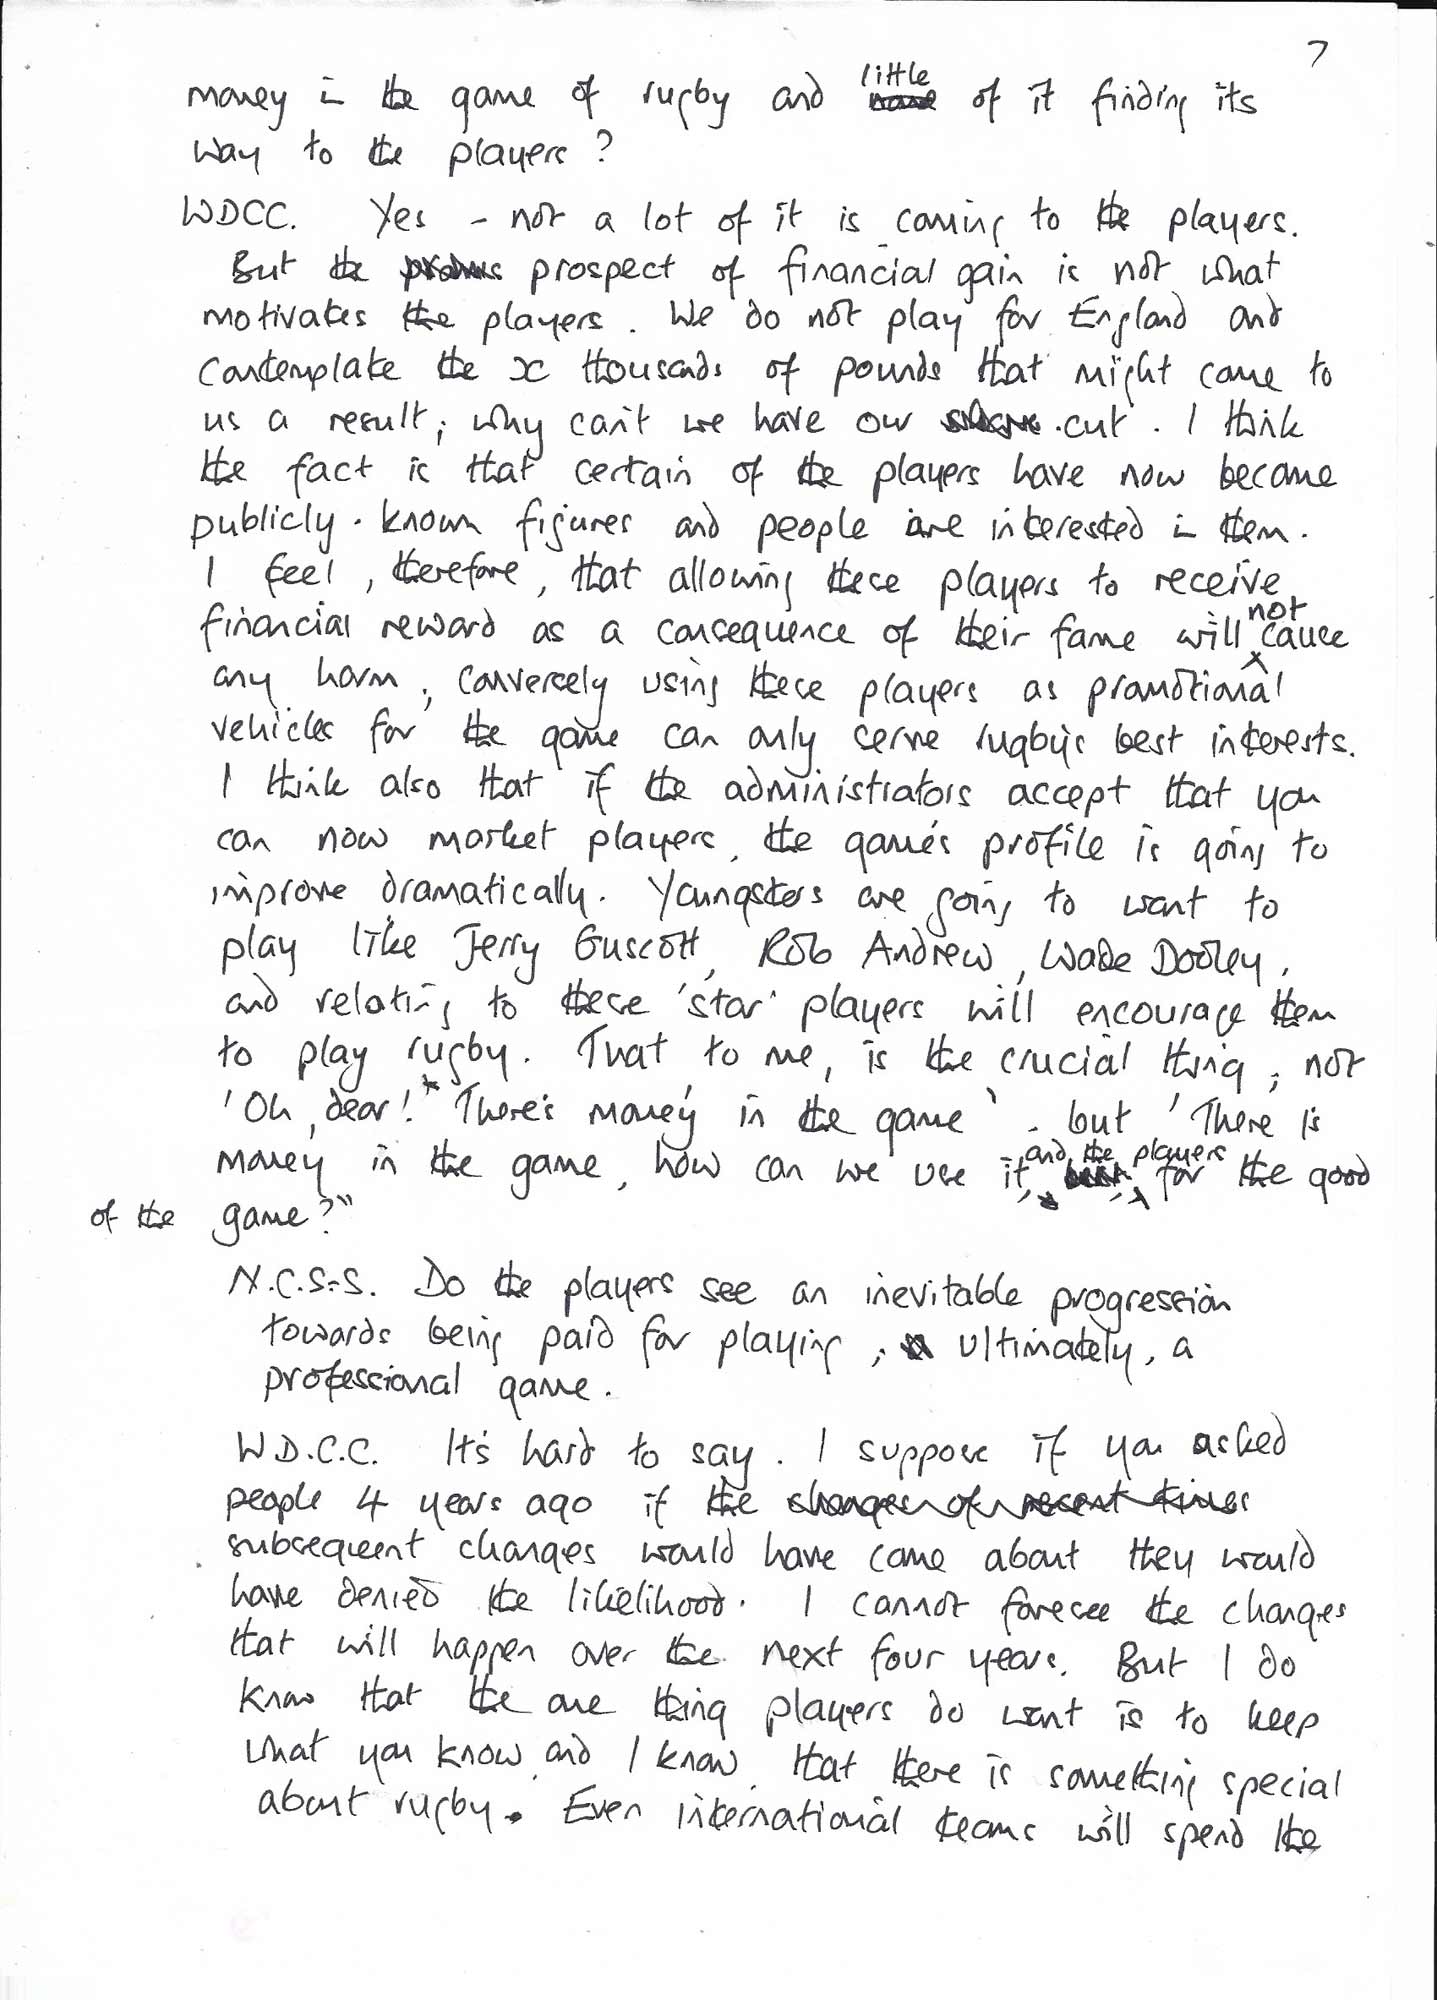 7
money in the game of rugby and little of it finding its
way to the players?
WDCC. Yes - not a lot of it is coming to the players.
But the prospect of financial gain is not what
motivates the players. We do not play for England and
contemplate the x thousands of pounds that might come to
us a result; why can't we have our cut. I think
the fact is that certain of the players have now become
publicly-known figures and people are interested in them.
I feel, therefore, that allowing these players to receive
financial reward as a consequence of their fame will not cause
any harm; conversely using these players as promotional
vehicles for the game can only serve rugby's best interests.
I think also that if the administrators accept that you
can now market players, the game's profile is going to
improve dramatically. Youngsters are going to want to
play like Jerry Guscott, Rob Andrew, Wade Dooley,
and relating to these 'star' players will encourage them
to play rugby. That to me, is the crucial thing; not
'Oh, dear! There's money in the game' - but 'There is
money in the game, how can we use it, and the players, for the good
of the game?"
N.C.S-S. Do the players see an inevitable progression
towards being paid for playing; ultimately, a
professional game.
W D.C.C. It's hard to say. I suppose if you asked
people 4 years ago if the changes of recent times
subsequent changes would have come about they would
have denied the likelihood. I cannot foresee the changes
that will happen over the next four years. But I do
know that the one thing players do want is to keep
what you know, and I know, that there is something special
about rugby. Even international teams will spend the